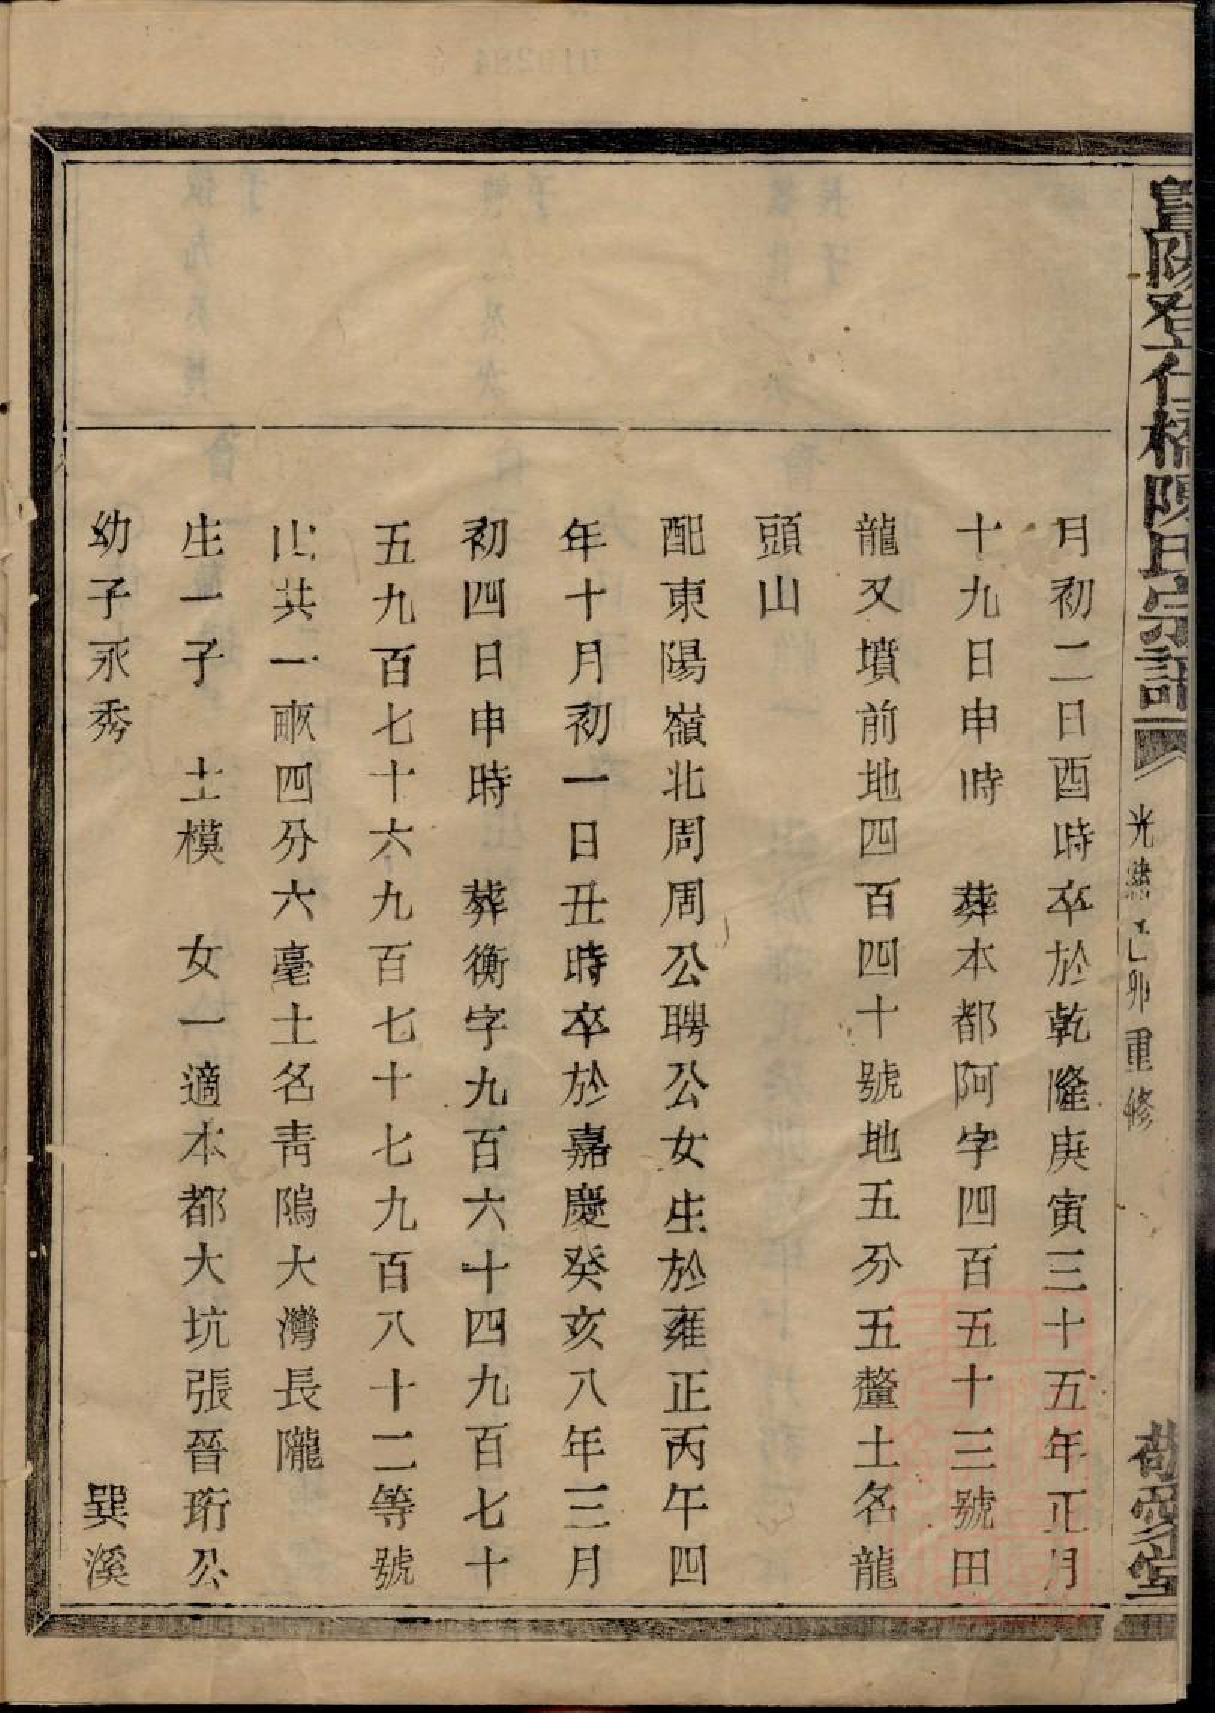 暨陽孝仁橋陳氏宗譜
光緒己卯重修
敬愛堂
月初二日酉時卒於乾隆庚寅三十五年正月
十九日申時 葬本都阿字四百五十三號田
龍又墳前地四百四十號地五分五釐土名龍
頭山
配東陽嶺北周周公聘公女生於雍正丙午四
年十月初一日丑時卒於嘉慶癸亥八年三月
初四日申時 葬衡字九百六十四九百七十
五九百七十六九百七十七九百八十二等號
山共一畝四分六毫土名青隝大灣長隴
生一子 士模 女一適本都大坑張晉珩公
幼子永秀 巽溪